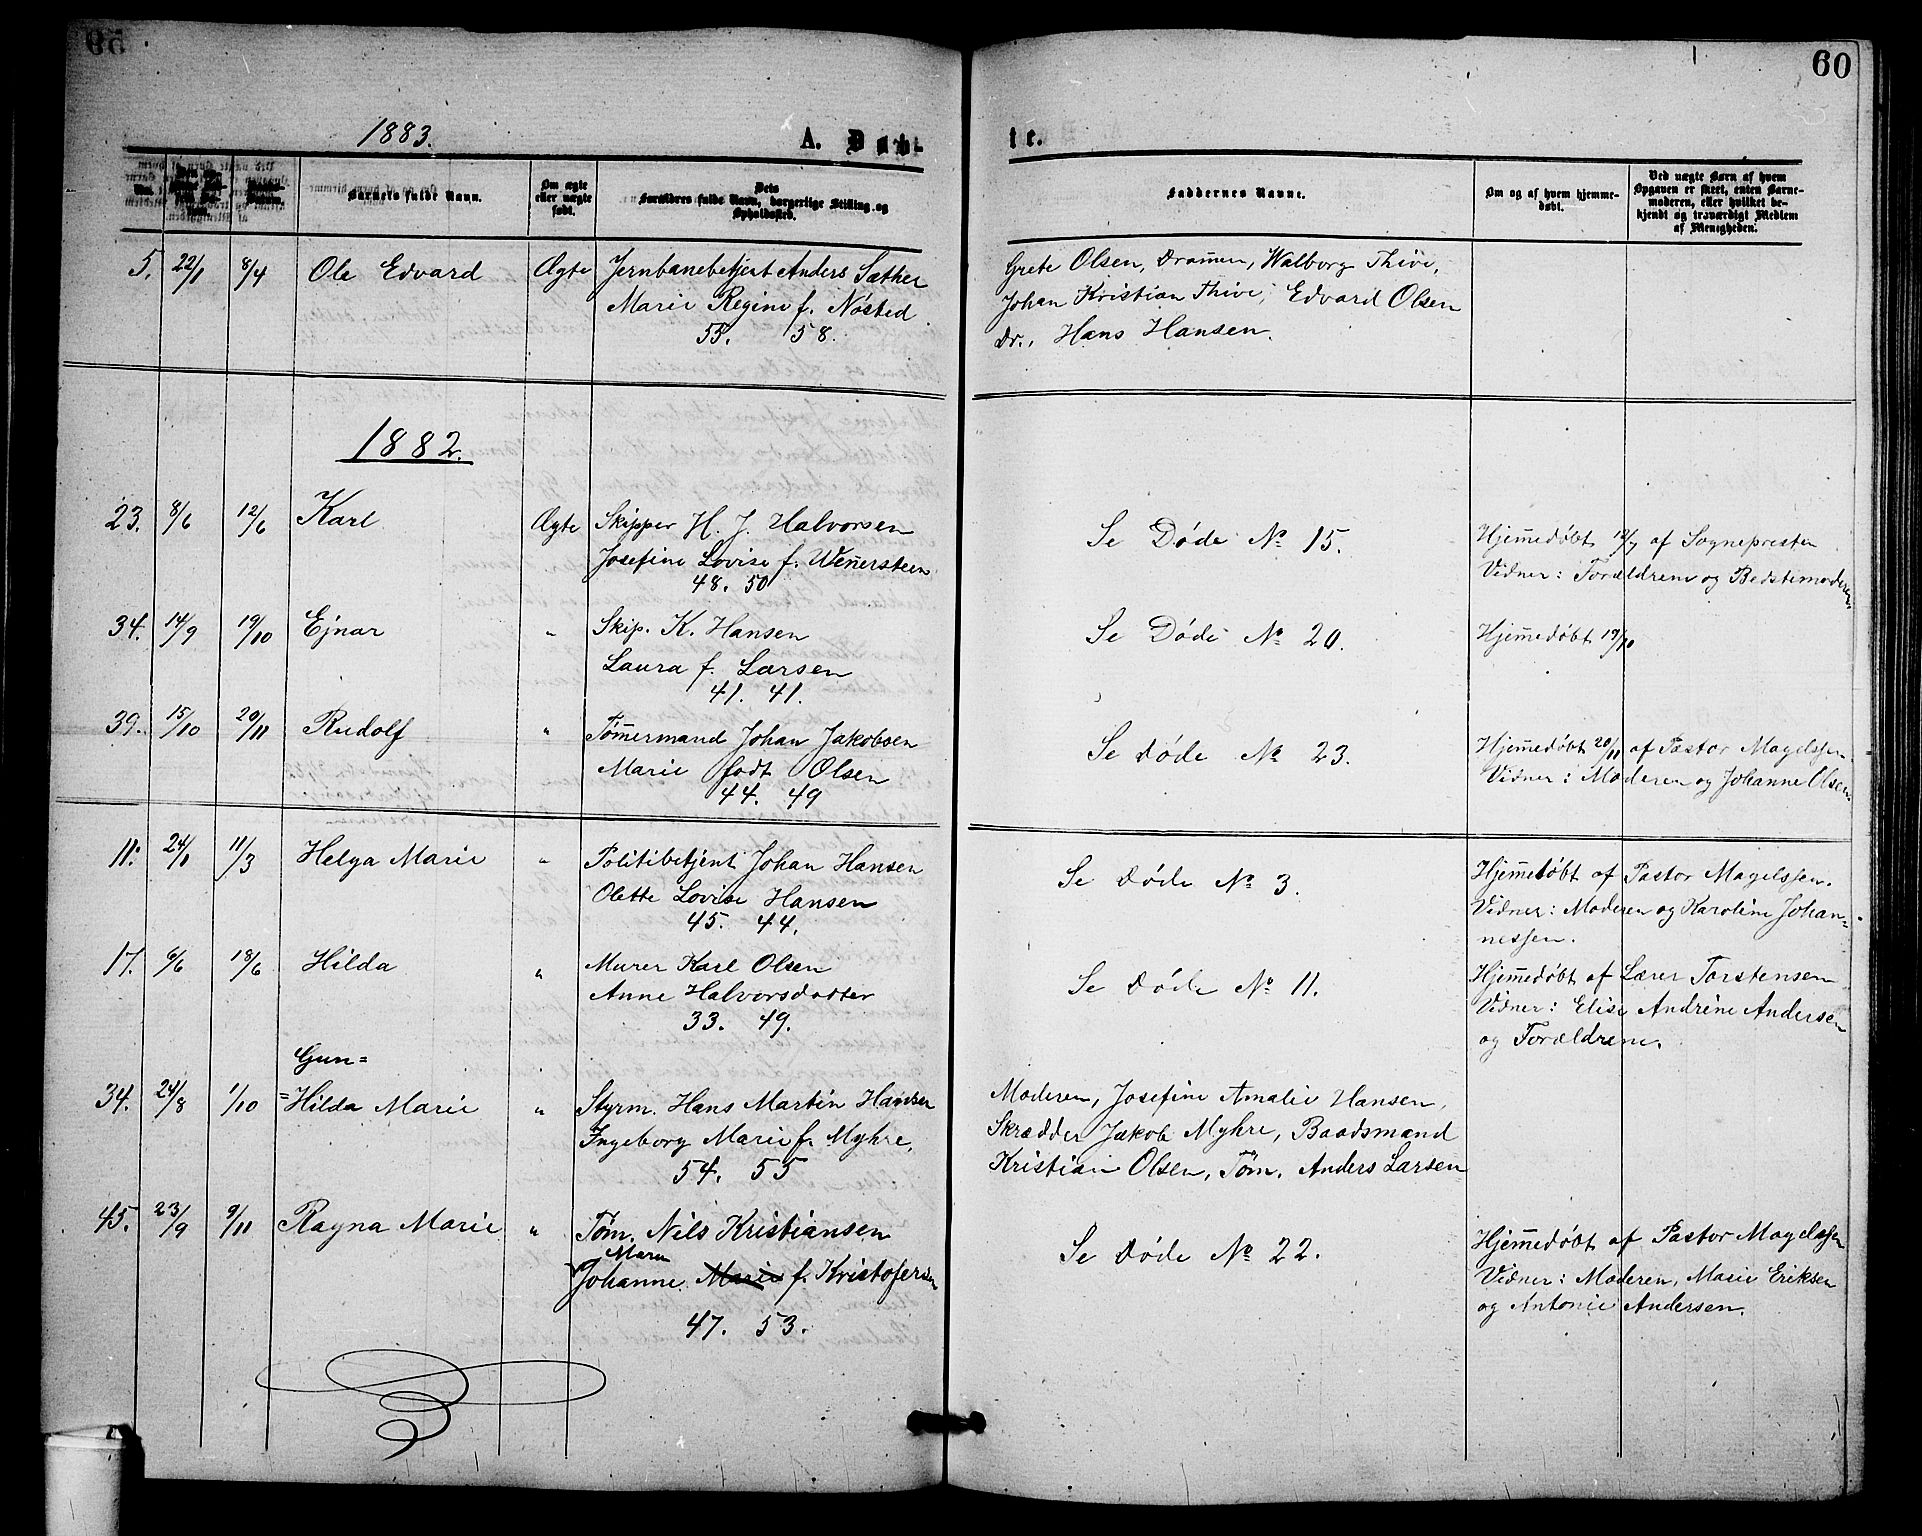 60
1883.
A. Døbte.
No.
Barnets fulde Navn.
Om ægte eller uægte født.
Dets Forældres fulde Navn, borgerlige Stilling og Opholdssted.
Faddernes Navne.
Om og af hvem hjemmedøbt.
Ved uægte Børn af hvem Opgaven er skeet, enten Barnemoderen, eller hvilket bekjendt og troværdigt Medlem af Menigheden.
5. 22/1 8/4 Ole Edvard Ægte Jernbanebetjent Anders Sæther
Marie Regine f. Nøsted
55. 58.
Grete Olsen, Drammen, Walborg Thive,
Johan Kristian Thive, Edvard Olsen
Dr., Hans Hansen.
1882.
23. 8/6 12/6 Karl Ægte Skipper H. J. Halvorsen
Josefine Lovise f. Wennersteen
48. 50
Se Døde No 15.
Hjemmedøbt 12/7 af Sognepresten
Vidner: Forældrene og Bedstemoderen
34. 14/9 19/10 Ejnar " Skip. K. Hansen
Laura f. Larsen
41. 41.
Se Døde No 20.
Hjemmedøbt 19/10
39. 15/10 20/11 Rudolf " Tømmermand Johan Jakobsen
Marie født Olsen
44. 49
Se Døde No 23.
Hjemmedøbt 20/11 af Pastor Magelssen
Vidner: Moderen og Johanne Olsen.
11. 24/1 11/3 Helga Marie " Politibetjent Johan Hansen
Olette Lovise Hansen
45. 44.
Se Døde No 3.
Hjemmedøbt af Pastor Magelssen.
Vidner: Moderen og Karoline Johan-
nessen.
17. 6/6 18/6 Hilda " Murer Karl Olsen
Anne Halvorsdatter
33. 49.
Se Døde No 11.
Hjemmedøbt af Lærer Torstensen
Vidner: Elise Andrine Andersen
og Forældrene.
Gun=
34. 24/8 1/10 =Hilda Marie " Styrm. Hans Martin Hansen
Ingeborg Marie f. Myhre,
54. 55
Moderen, Josefine Amalie Hansen,
Skrædder Jakob Myhre, Baadsmand
Kristian Olsen, Tøm. Anders Larsen
45. 23/9 9/11 Ragna Marie " Tøm. Nils Kristiansen
Maren
Johanne Marie f. Kristofersen
47. 53.
Se Døde No 22.
Hjemmedøbt af Pastor Magelssen
Vidner: Moderen, Marie Eriksen
og Antonie Andersen.